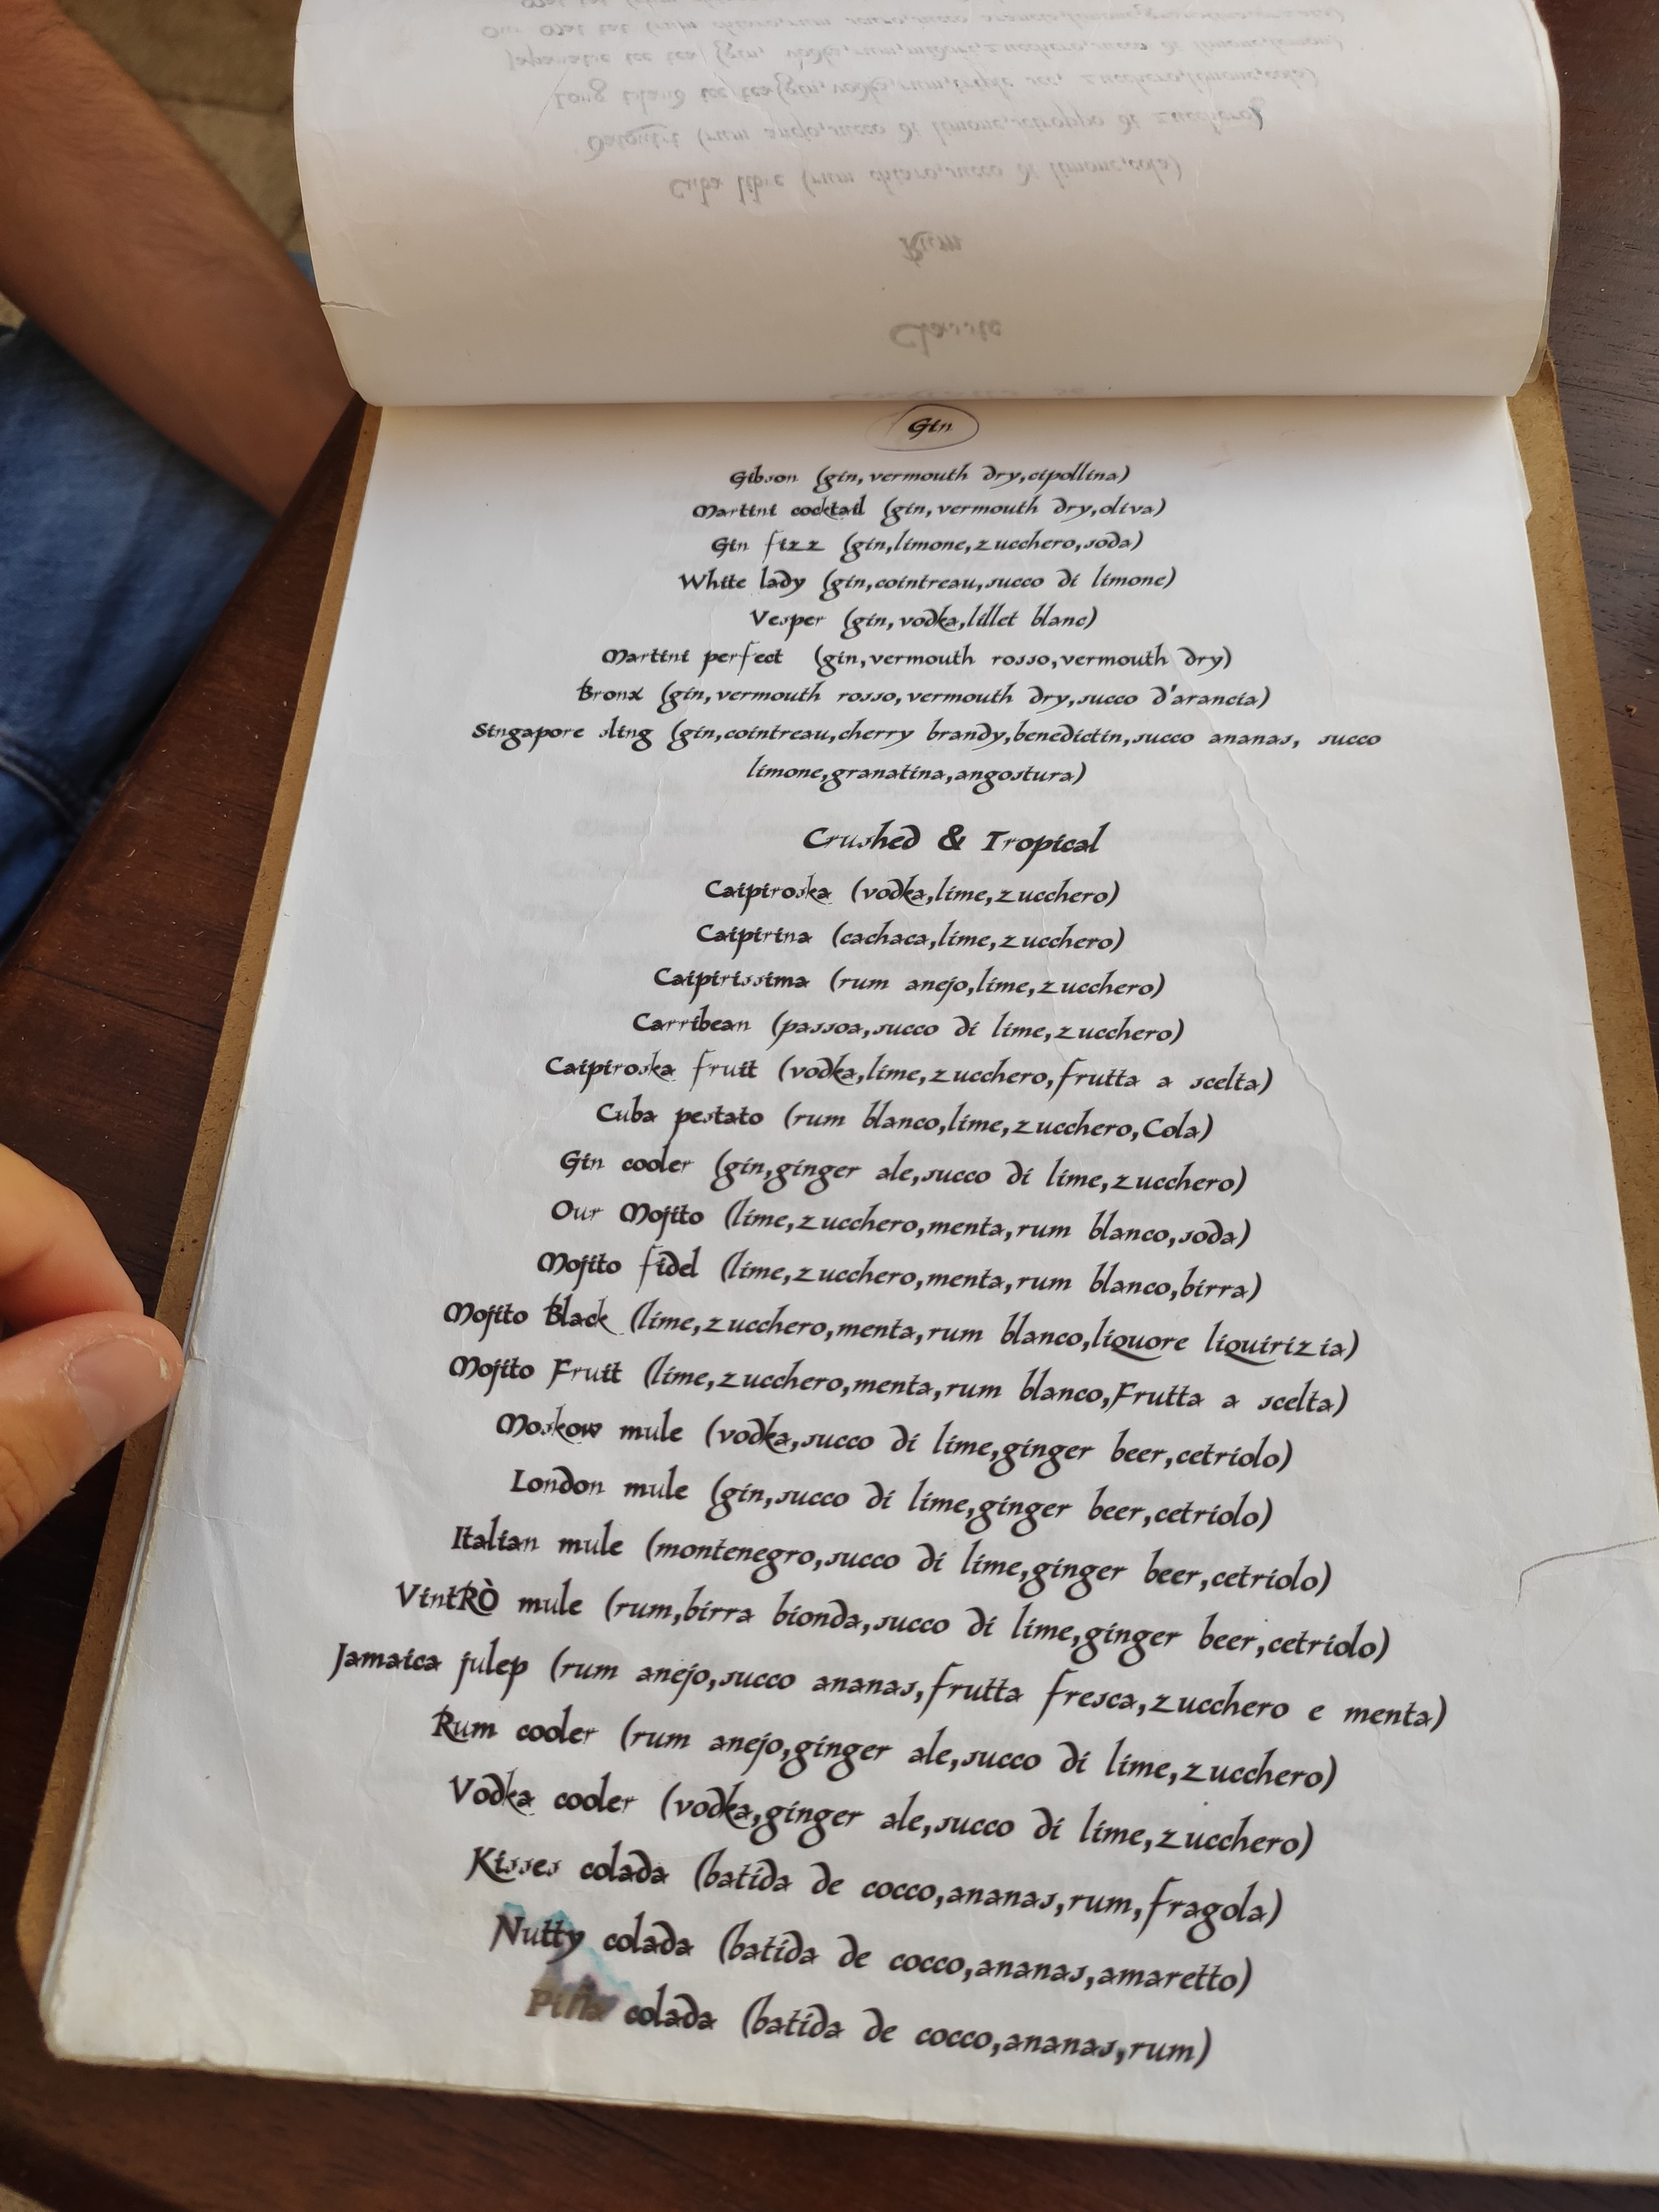 Gin
Gibson (gin,vermouth dry,cipollina)
Martini cocktail (gin,vermouth dry,oliva)
Gin fizz (gin,limone,zucchero,soda)
White lady (gin,cointreau,succo di limone)
Vesper (gin,vodka,lillet blanc)
Martini perfect (gin,vermouth rosso,vermouth dry)
Bronx (gin,vermouth rosso,vermouth dry,succo d'arancia)
Singapore sling (gin,cointreau,cherry brandy,benedictin,succo ananas, succo
limone,granatina,angostura)
Crushed & Tropical
Caipiroska (vodka,lime,zucchero)
Caipirina (cachaca,lime,zucchero)
Caipirissima (rum anejo,lime,zucchero)
Carribean (passoa,succo di lime,zucchero)
Caipiroska fruit (vodka,lime,zucchero,frutta a scelta)
Cuba pestato (rum blanco,lime,zucchero,Cola)
Gin cooler (gin,ginger ale,succo di lime,zucchero)
Our Mojito (lime,zucchero,menta,rum blanco,soda)
Mojito fidel (lime,zucchero,menta,rum blanco,birra)
Mojito Black (lime,zucchero,menta,rum blanco,liquore liquirizia)
Mojito Fruit (lime,zucchero,menta,rum blanco,Frutta a scelta)
Moskow mule (vodka,succo di lime,ginger beer,cetriolo)
London mule (gin,succo di lime,ginger beer,cetriolo)
Italian mule (montenegro,succo di lime,ginger beer,cetriolo)
VintRÒ mule (rum,birra bionda,succo di lime,ginger beer,cetriolo)
Jamaica julep (rum anejo,succo ananas,frutta fresca,zucchero e menta)
Rum cooler (rum anejo,ginger ale,succo di lime,zucchero)
Vodka cooler (vodka,ginger ale,succo di lime,zucchero)
Kisses colada (batida de cocco,ananas,rum,fragola)
Nutty colada (batida de cocco,ananas,amaretto)
Piña colada (batida de cocco,ananas,rum)